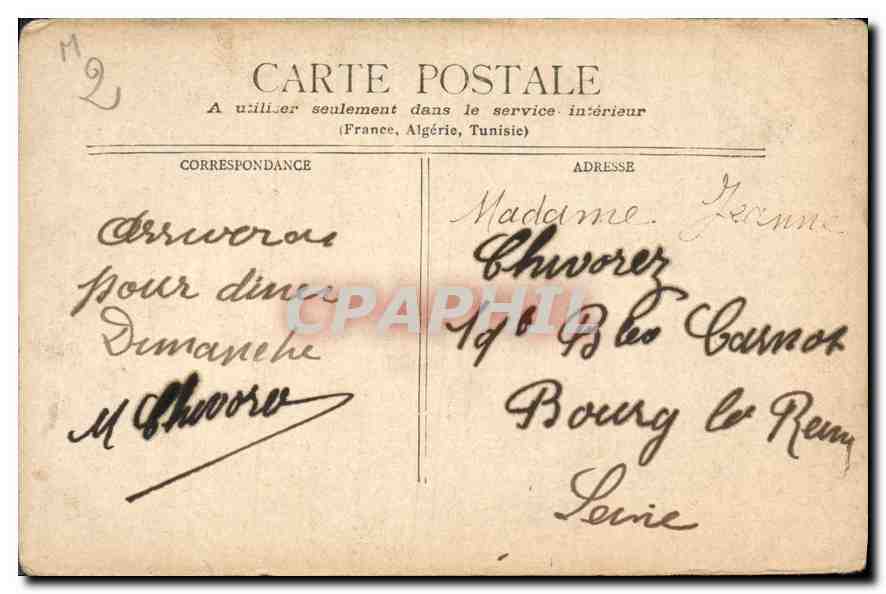 M
2
CARTE POSTALE
A utiliser seulement dans le service intérieur
(France, Algérie, Tunisie)
CORRESPONDANCE
Arriverai
pour diner
Dimanche
M Chivorez
ADRESSE
Madame Jeanne
Chivorez
Carnot
Bourg la Reine
Seine
CPAPHIL